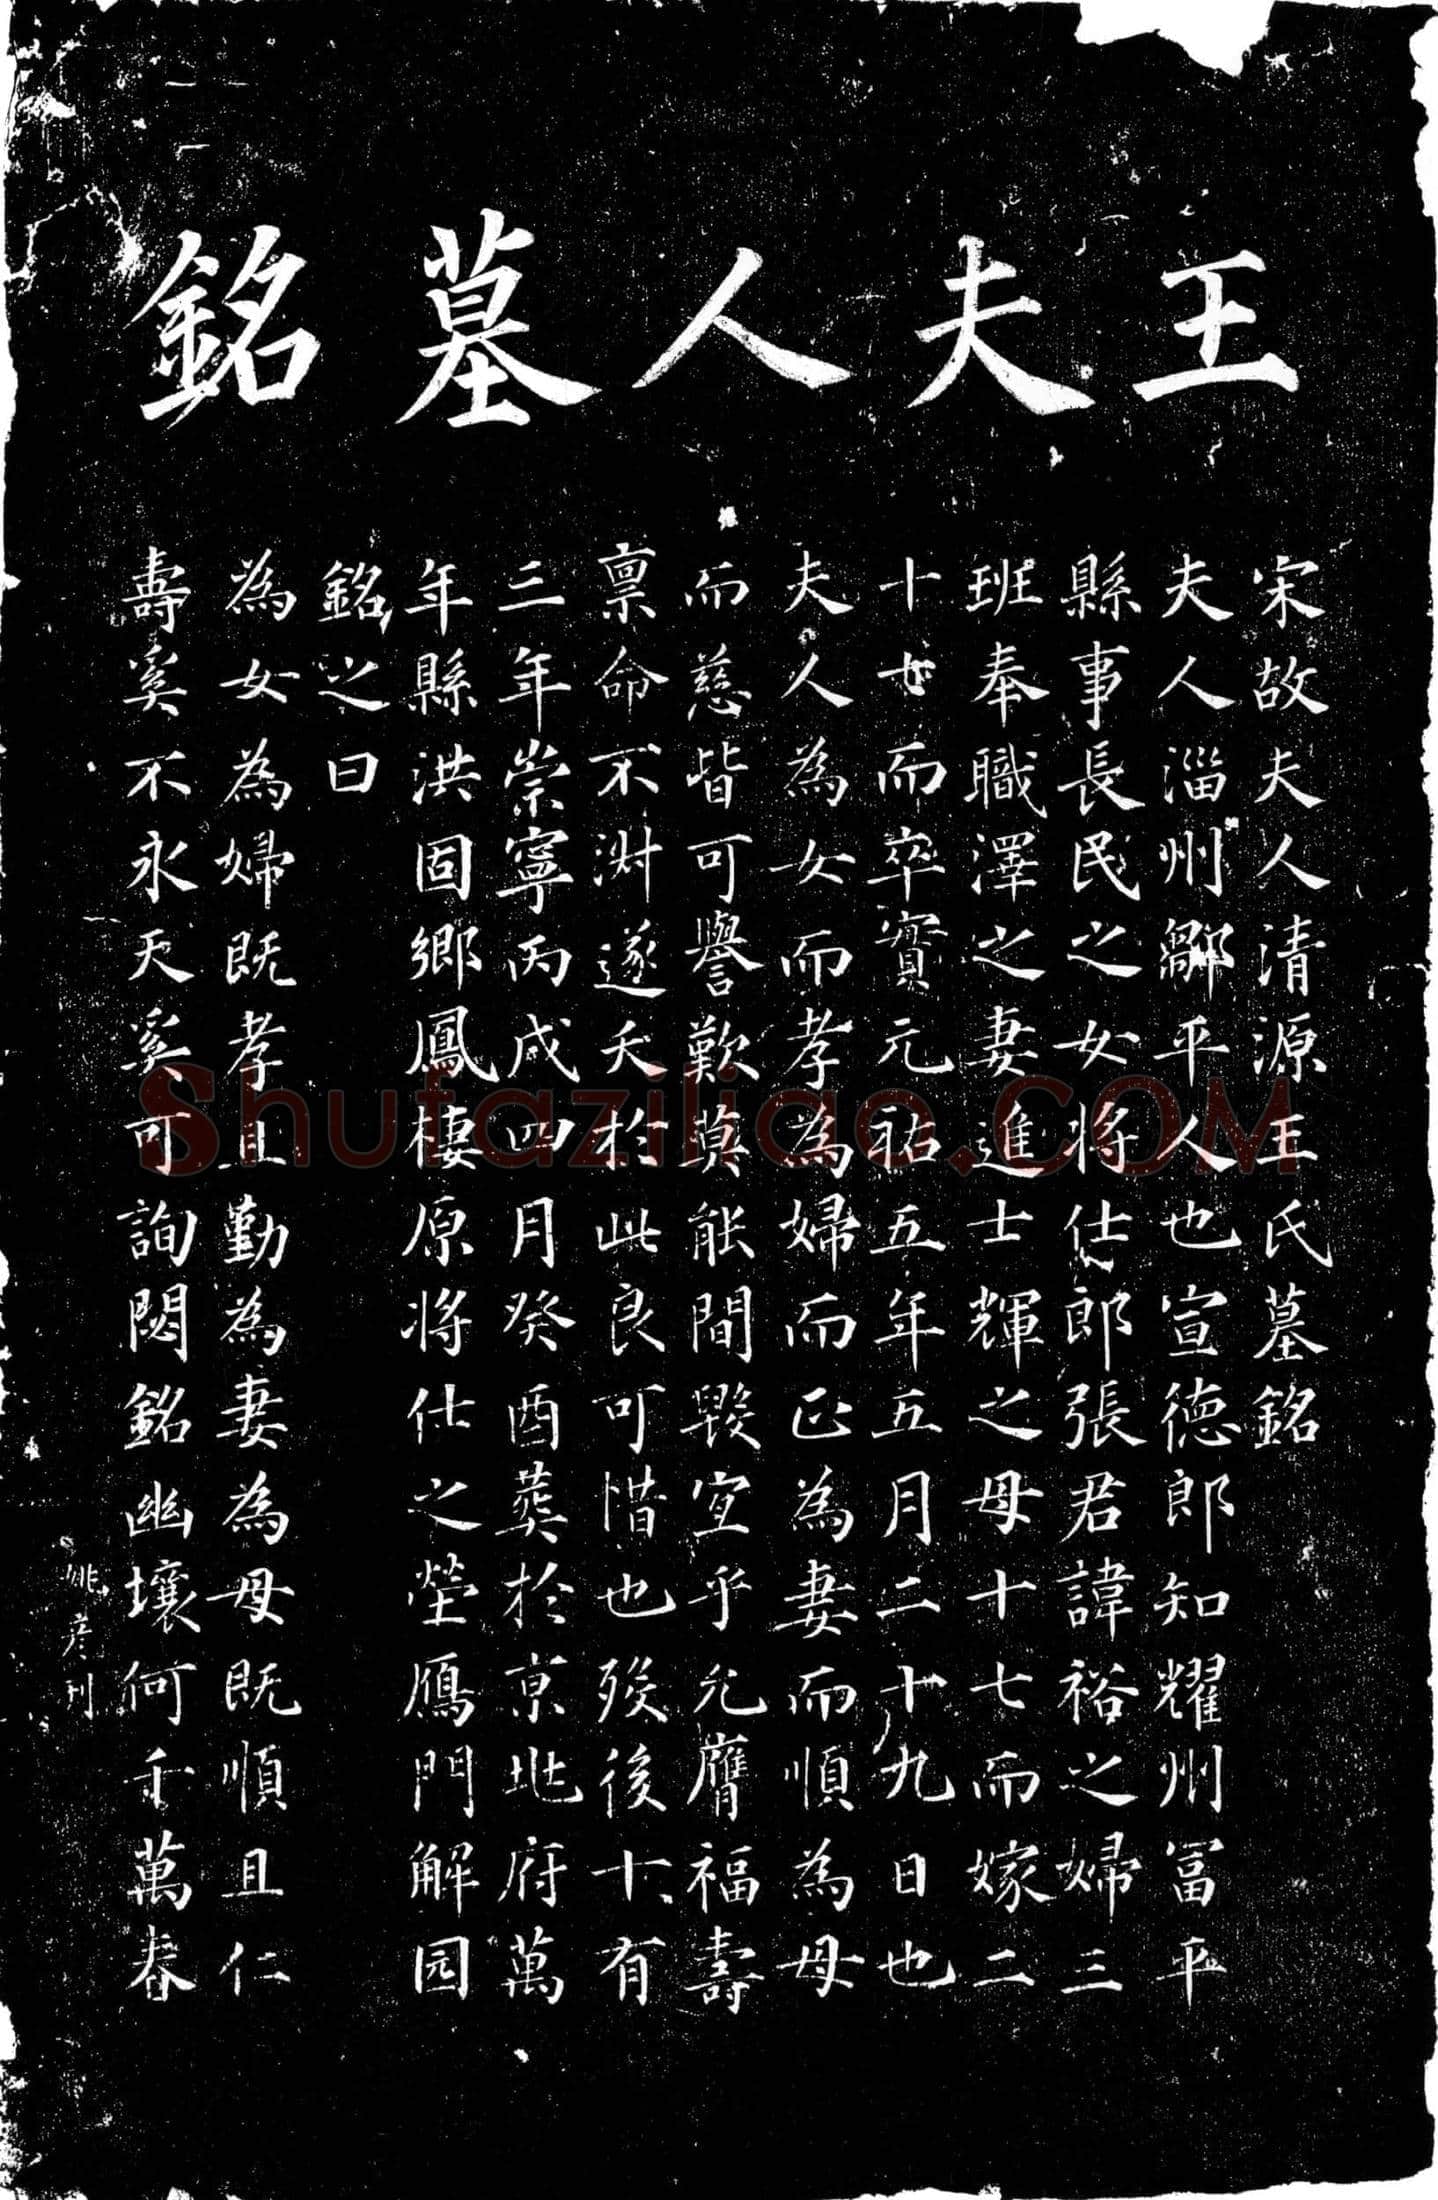 王夫人墓銘
宋故夫人清源王氏墓銘
夫人淄州鄒平人也宣德郎知耀州冨平
縣事長民之女将仕郎張君諱裕之婦三
班奉職澤之妻進士輝之母十七而嫁二
十七而卒實元祐五年五月二十九日也
夫人為女而孝為婦而正為妻而順為母
而慈皆可譽歎莫能間毀宜乎允膺福壽
禀命不淑遂夭扵此良可惜也歿後十有
三年崇寧丙戌四月癸酉葬扵京兆府萬
年縣洪固鄉鳳棲原将仕之塋鴈門解园
銘之曰
為女為婦既孝且勤為妻為母既順且仁
壽奚不永天奚可詢閟銘幽壤何千萬春
姚彦刊
Shufaziliao.COM